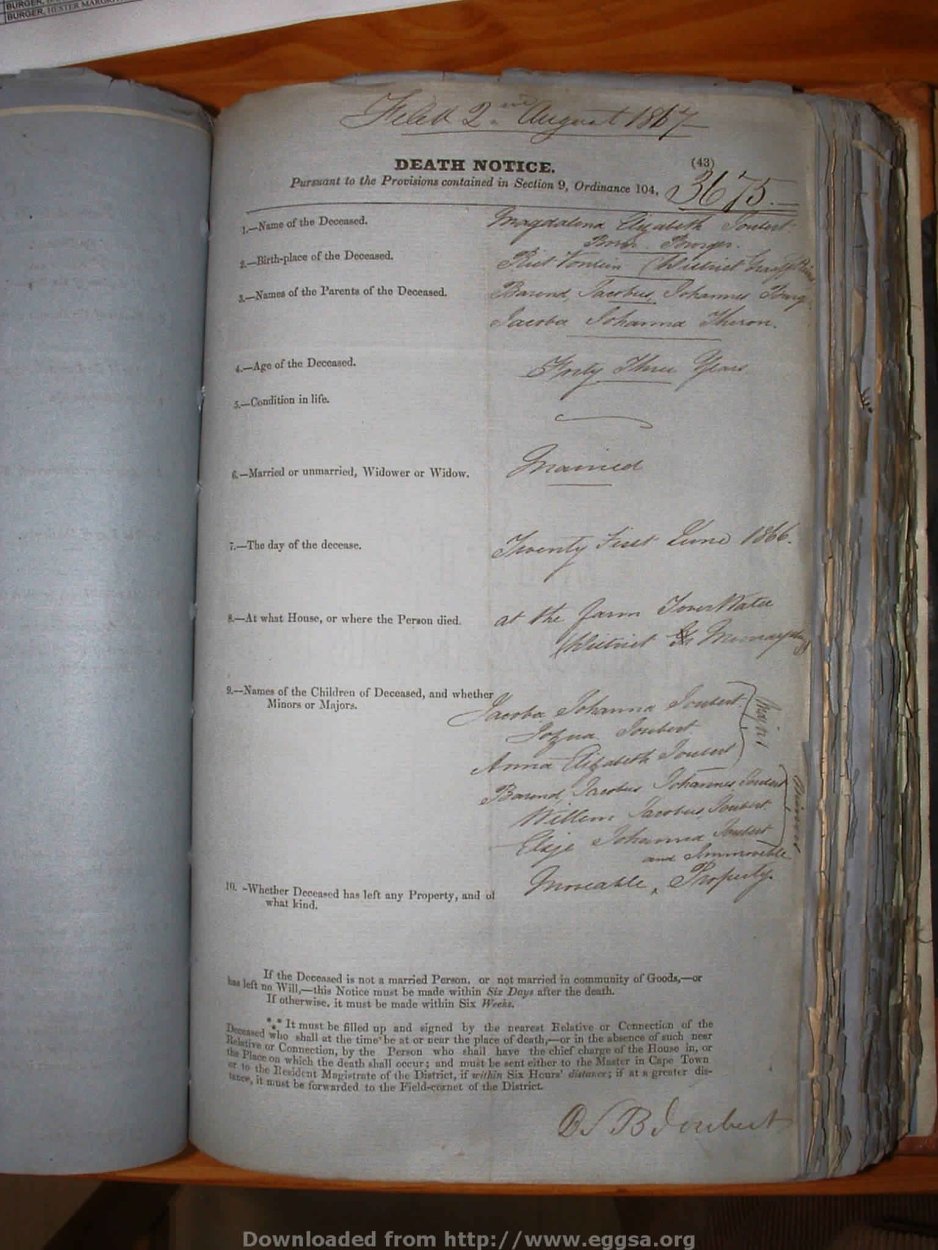 BURGER, HESTER
Filed 2nd August 1867
DEATH NOTICE. (43)
Pursuant to the Provisions contained in Section 9, Ordinance 104. 3675.
1.—Name of the Deceased. Magdalena Elizabeth Joubert
Born Burger.
2.—Birth-place of the Deceased. (District
3.—Names of the Parents of the Deceased. Barend Jacobus Johannes
Jacoba Johanna Theron.
4.—Age of the Deceased. Forty Three Years
5.—Condition in life.
6.—Married or unmarried, Widower or Widow. Married
7.—The day of the decease. Twenty First June 1866.
8.—At what House, or where the Person died. at the farm
(District
9.—Names of the Children of Deceased, and whether
Minors or Majors.
Jacoba Johanna Joubert
Joubert
Anna Elizabeth Joubert
Majors
Barend Jacobus Johannes Joubert
Willem Jacobus Joubert
Johanna Joubert
Minors
and Immovable
10. -Whether Deceased has left any Property, and of Moveable Property.
what kind.
If the Deceased is not a married Person, or not married in community of Goods,—or
has left no Will,—this Notice must be made within Six Days after the death.
If otherwise, it must be made within Six Weeks.
*** It must be filled up and signed by the nearest Relative or Connection of the
Deceased who shall at the time be at or near the place of death,—or in the absence of such near
Relative or Connection, by the Person who shall have the chief charge of the House in, or
the Place on which the death shall occur; and must be sent either to the Master in Cape Town
or to the Resident Magistrate of the District, if within Six Hours' distance; if at a greater dis-
tance, it must be forwarded to the Field-cornet of the District.
Joubert
Downloaded from http://www.eggsa.org